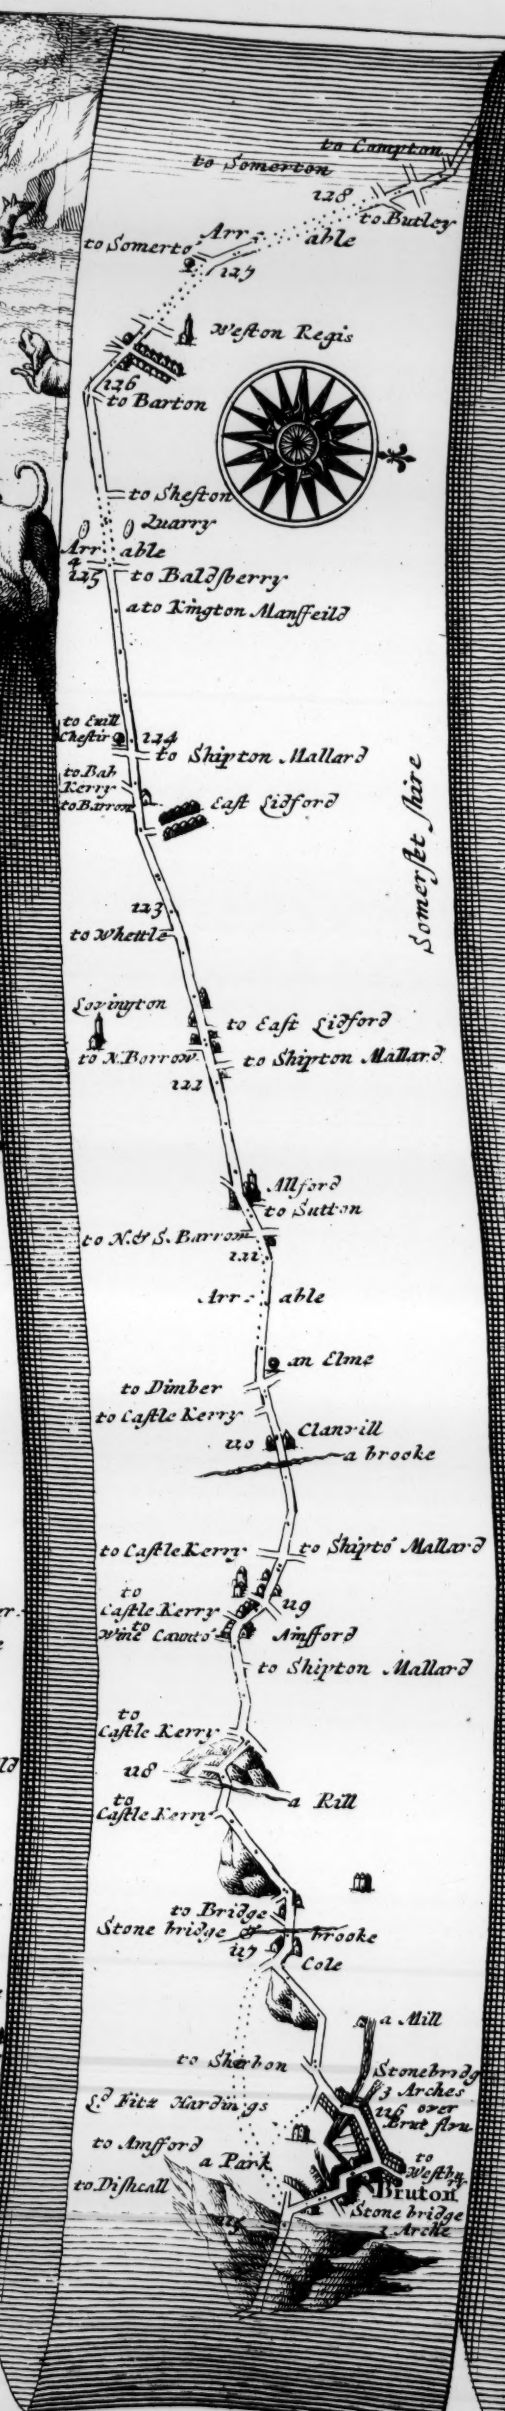 to Compton
to Somerton
128
to Butley
Arr : able
to Somerto
127
Weston Regis
126
to Barton
to Shefton
Quarry
Arr able
a
125
to Baldsberry
a to Kington Mansfeild
to Evill
Chestir
124
to Shipton Mallard
to Bab
Kerry
to Barron
East Lidford
Somerset shire
123
to Whettle
Lovington
to East Lidford
to N. Borrow
to Shipton Mallard
122
Allford
to Sutton
to N. & S. Barrow
121
Arr : able
an Elme
to Dimber
to Castle Kerry
Clanvill
120
a brooke
to Castle Kerry
to Shipto Mallard
to
Castle Kerry
119
to
Wine Caunto
Amsford
to Shipton Mallard
to
Castle Kerry
118
a Rill
to
Castle Kerry
to Bridge
Stone bridge
brooke
117
Cole
a Mill
to Sherbon
Stonebridg
3 Arches
116 over
Brut flru
Ld Fitz Hardings
to Amsford
a Park
to
Westbury
to Dishcall
Bruton
Stone bridge
1 Arche
115